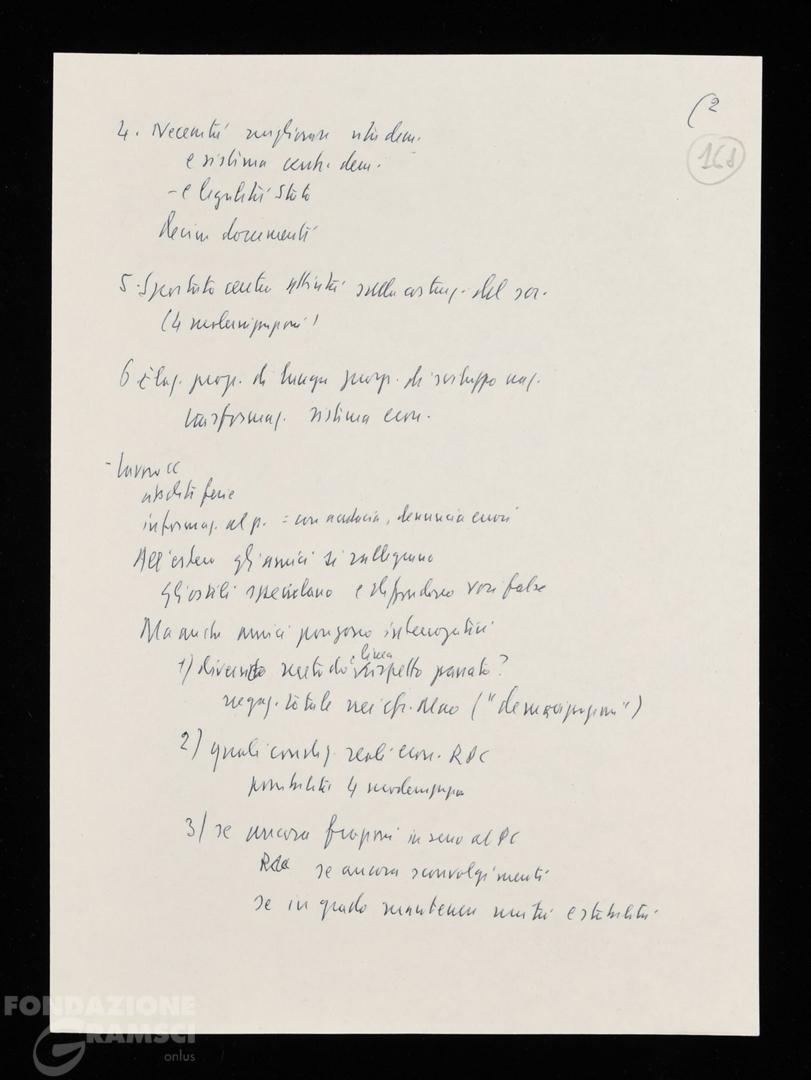 (2
168
4. Necessità migliorare vita dem.
e sistema centr. dem.
- e legalità Stato
Decine documenti
5. Spostato centro attività sulla costruz. del soc.
(4 modernizzazioni)
6 Elab. progr. di lunga prosp. di sviluppo naz.
trasformaz. sistema econ.
- Lavoro CC
informaz. al p. = con audacia, denuncia errori
All'estero gli amici si rallegrano
gli ostili speculano e diffondono voci false
Ma anche amici pongono interrogativi
1) diverso metodo e linea rispetto passato?
negaz. totale nei cfr. Mao ("demaoizzazioni")
2) quali condiz. reali econ. RPC
possibilità 4 modernizzaz
3) se ancora frazioni in seno al PC
se ancora sconvolgimenti
se in grado mantenere unità e stabilità
FONDAZIONE
GRAMSCI
onlus